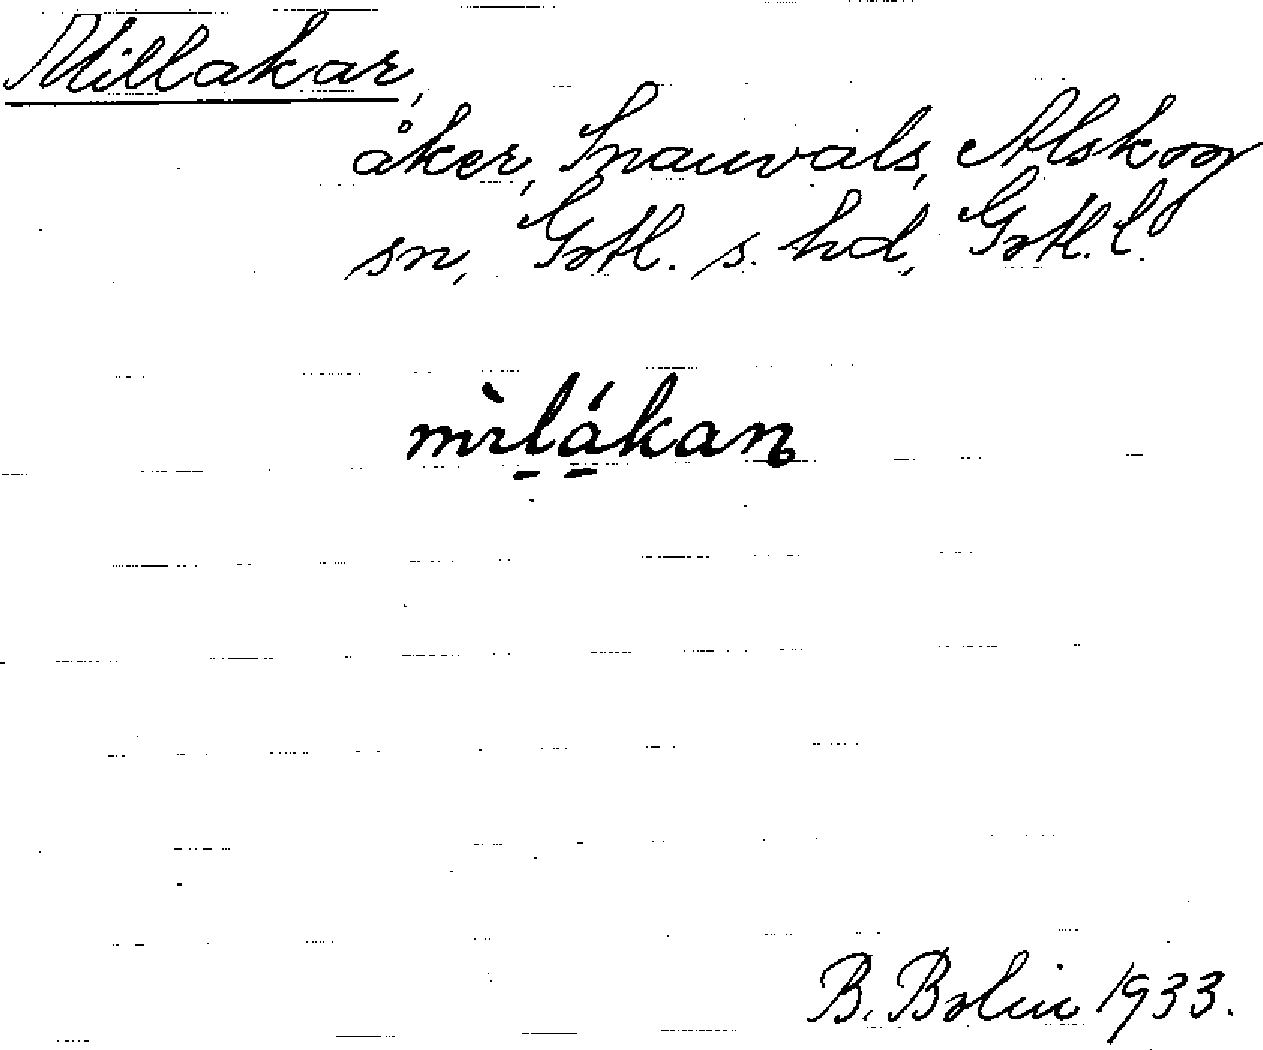 Millakar,
åker, Snauvals, Alskog
sn, Gotl. s. hd, Gotl. l.
mìlákan
B. Bolin 1933.